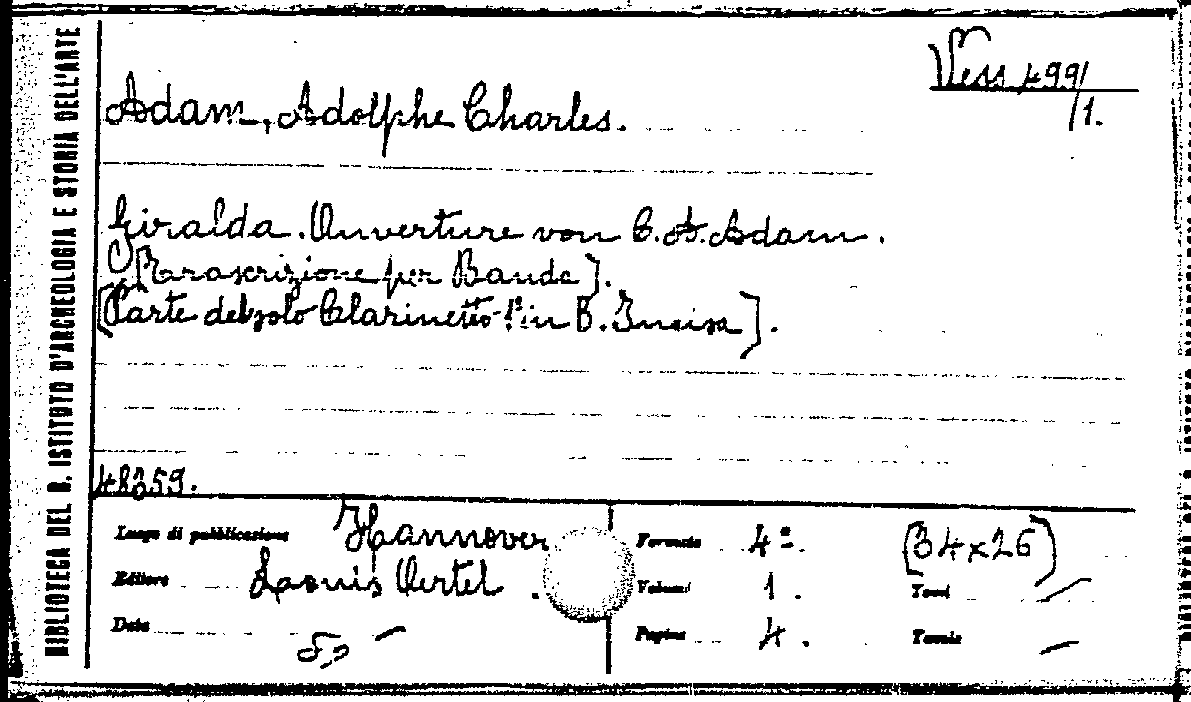 BIBLIOTECA DEL R. ISTITUTO D'ARCHEOLOGIA E STORIA DELL'ARTE
Vess. 499/1.
Adam, Adolphe Charles.
Giralda. Ouverture von C. A. Adam.
[Trascrizione per Banda].
[Parte del solo Clarinetto 1º in B. Incisa].
48259.
Luogo di pubblicazione Hannover
Editore Louis Oertel.
Data
Formato 4º. (34x26)
Volumi 1. Tomi —
Pagine 4. Tavole —